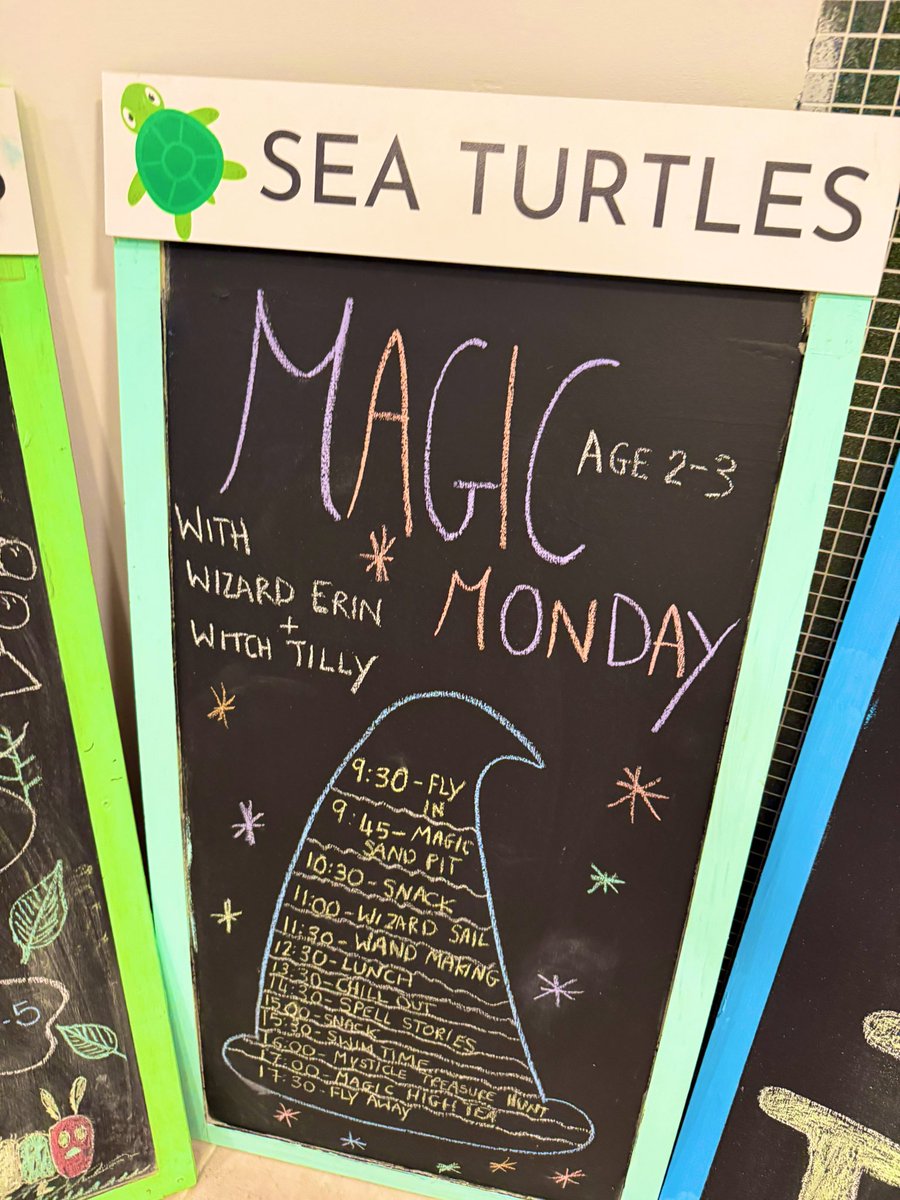 SEA TURTLES
MAGIC
AGE 2-3
MONDAY
WITH
WIZARD ERIN
+
WITCH TILLY
9:30-FLY
IN
9:45-MAGIC
SAND PIT
10:30-SNACK
11:00-WIZARD SAIL
11:30-WAND MAKING
12:30-LUNCH
13:30-CHILL OUT
14:30-SPELL STORIES
15:00-SNACK
15:30-SWIM TIME
16:00-MYSTICLE TREASURE HUNT
17:00-MAGIC HIGH TEA
17:30-FLY AWAY
S
-5